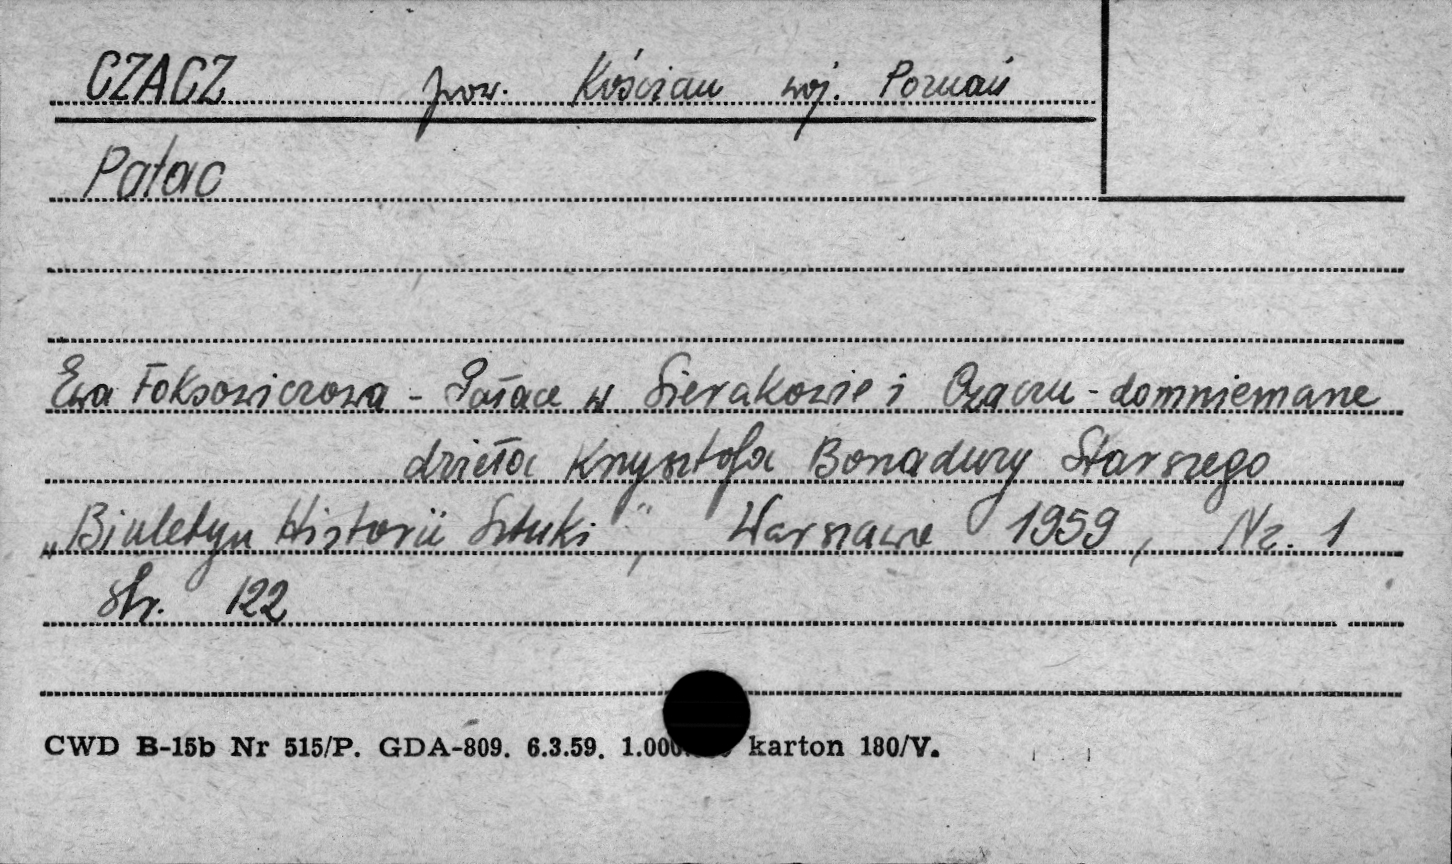 CZACZ pow. Kościan woj. Poznań
Pałac
Ewa Foksowiczowa - Pałace w Sierakowie i Czaczu - domniemane
dzieła Krzysztofa Bonadury Starszego
„Biuletyn Historii Sztuki", Warszawa 1959, Nr. 1
str. 122
CWD B-15b Nr 515/P. GDA-809. 6.3.59. karton 180/V.